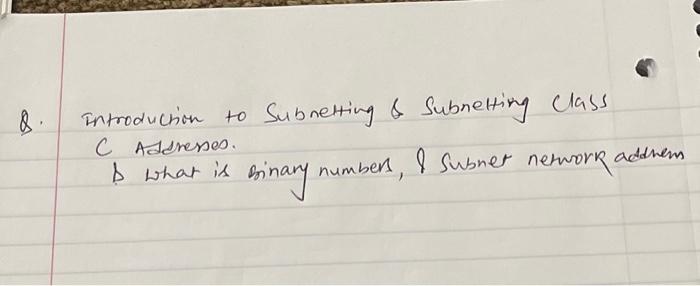 Q. Introduction to Subnetting & Subnetting Class
C Addresses.
b what is Binary numbers, & Subnet network address